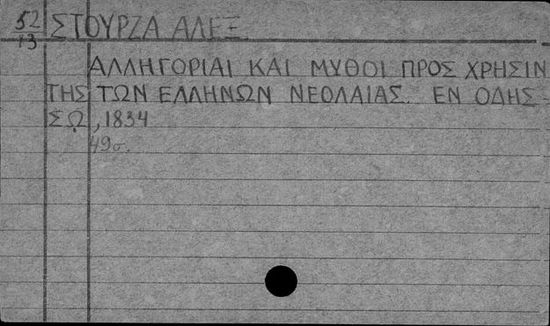 52
13
ΣΤΟΥΡΖΑ ΑΛΕΞ.
ΑΛΛΗΓΟΡΙΑΙ ΚΑΙ ΜΥΘΟΙ ΠΡΟΣ ΧΡΗΣΙΝ
ΤΗΣ ΤΩΝ ΕΛΛΗΝΩΝ ΝΕΟΛΑΙΑΣ. ΕΝ ΟΔΗΣ-
ΣΩ, 1834
49σ.